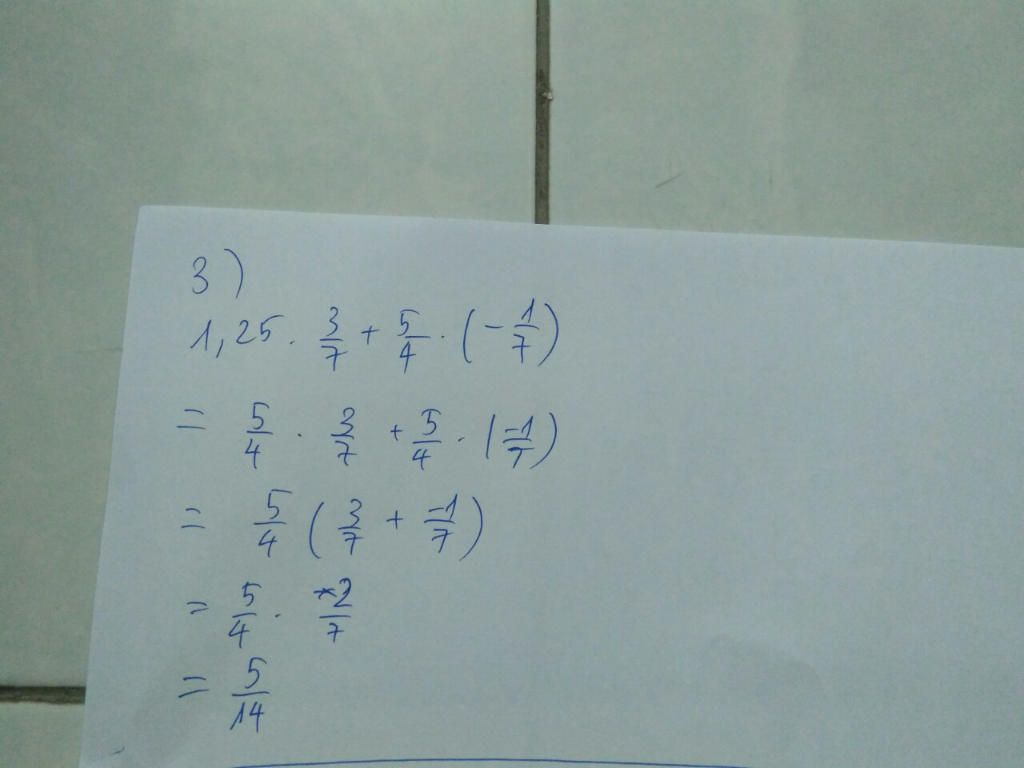 3)
1,25 . 3/7 + 5/4 . (- 1/7)
= 5/4 . 3/7 + 5/4 . (-1/7)
= 5/4 (3/7 + -1/7)
= 5/4 . 2/7
= 5/14